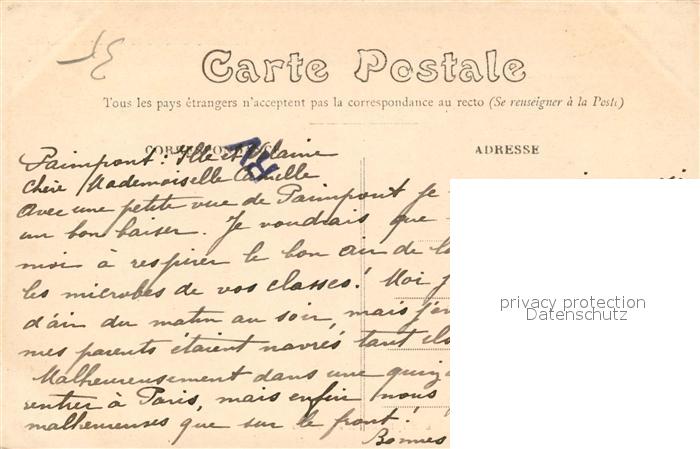 Carte Postale
Tous les pays étrangers n'acceptent pas la correspondance au recto (Se renseigner à la Poste)
CORRESPONDANCE
ADRESSE
RW
Paimpont: Ille et Vilaine
Chère Mademoiselle Camille
Avec une petite vue de Paimpont je
un bon baiser. Je voudrais que
moi à respirer le bon air de la
les microbes de vos classes! Moi
d'air du matin au soir, mais
mes parents étaient navrés tant ils
Malheureusement dans une
rentrer à Paris, mais enfin nous
malheureuses que sur le front!
Bonnes
privacy protection
Datenschutz